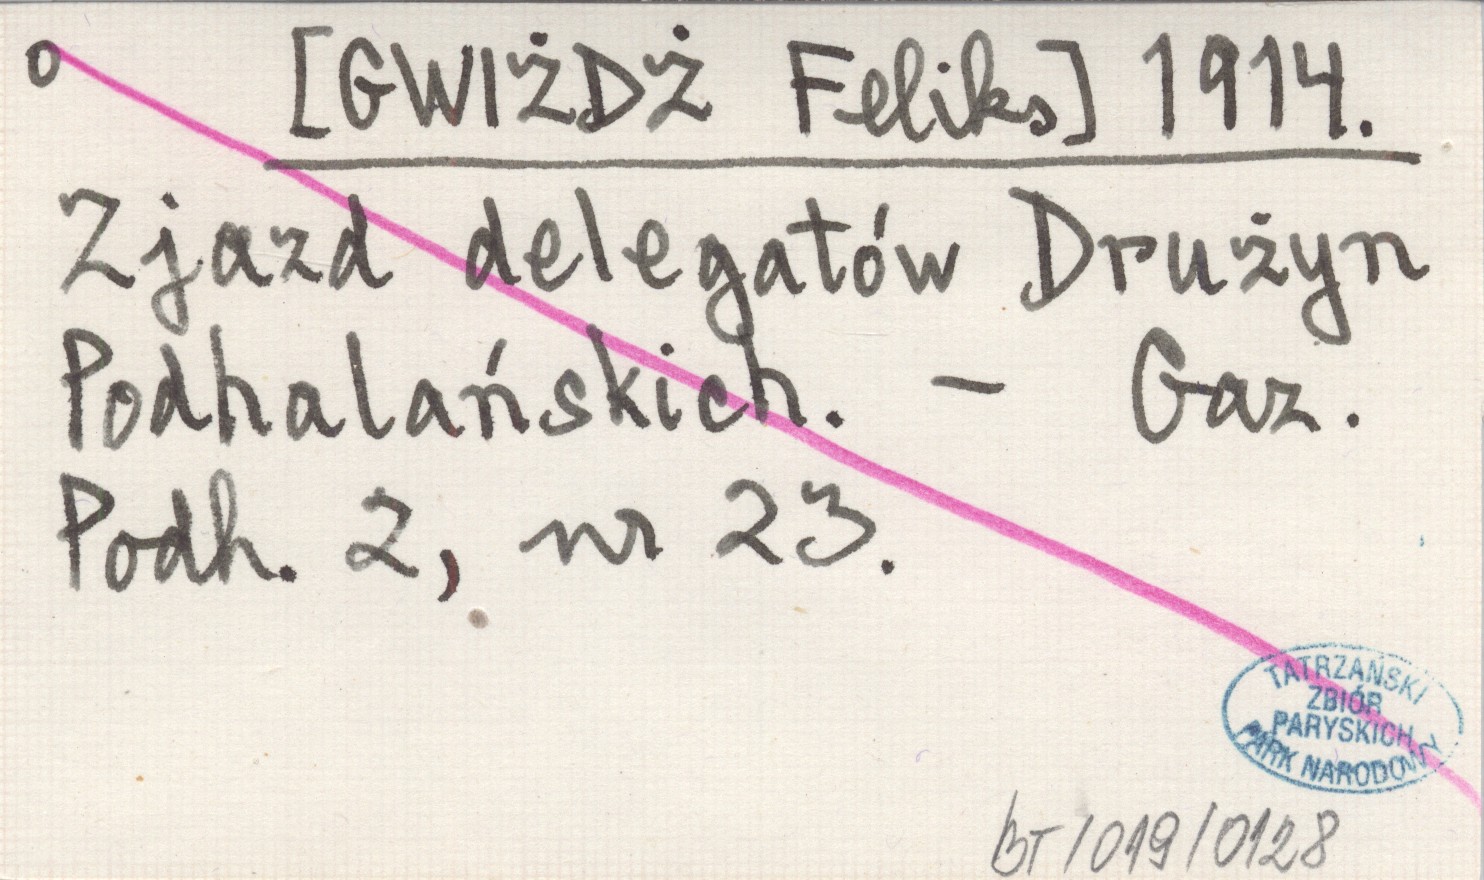 o [GWIŻDŻ Feliks] 1914.
Zjazd delegatów Drużyn
Podhalańskich. – Gaz.
Podh. 2, nr 23.
TATRZAŃSKI
ZBIÓR
PARYSKICH
PARK NARODOWY
BT/019/0128